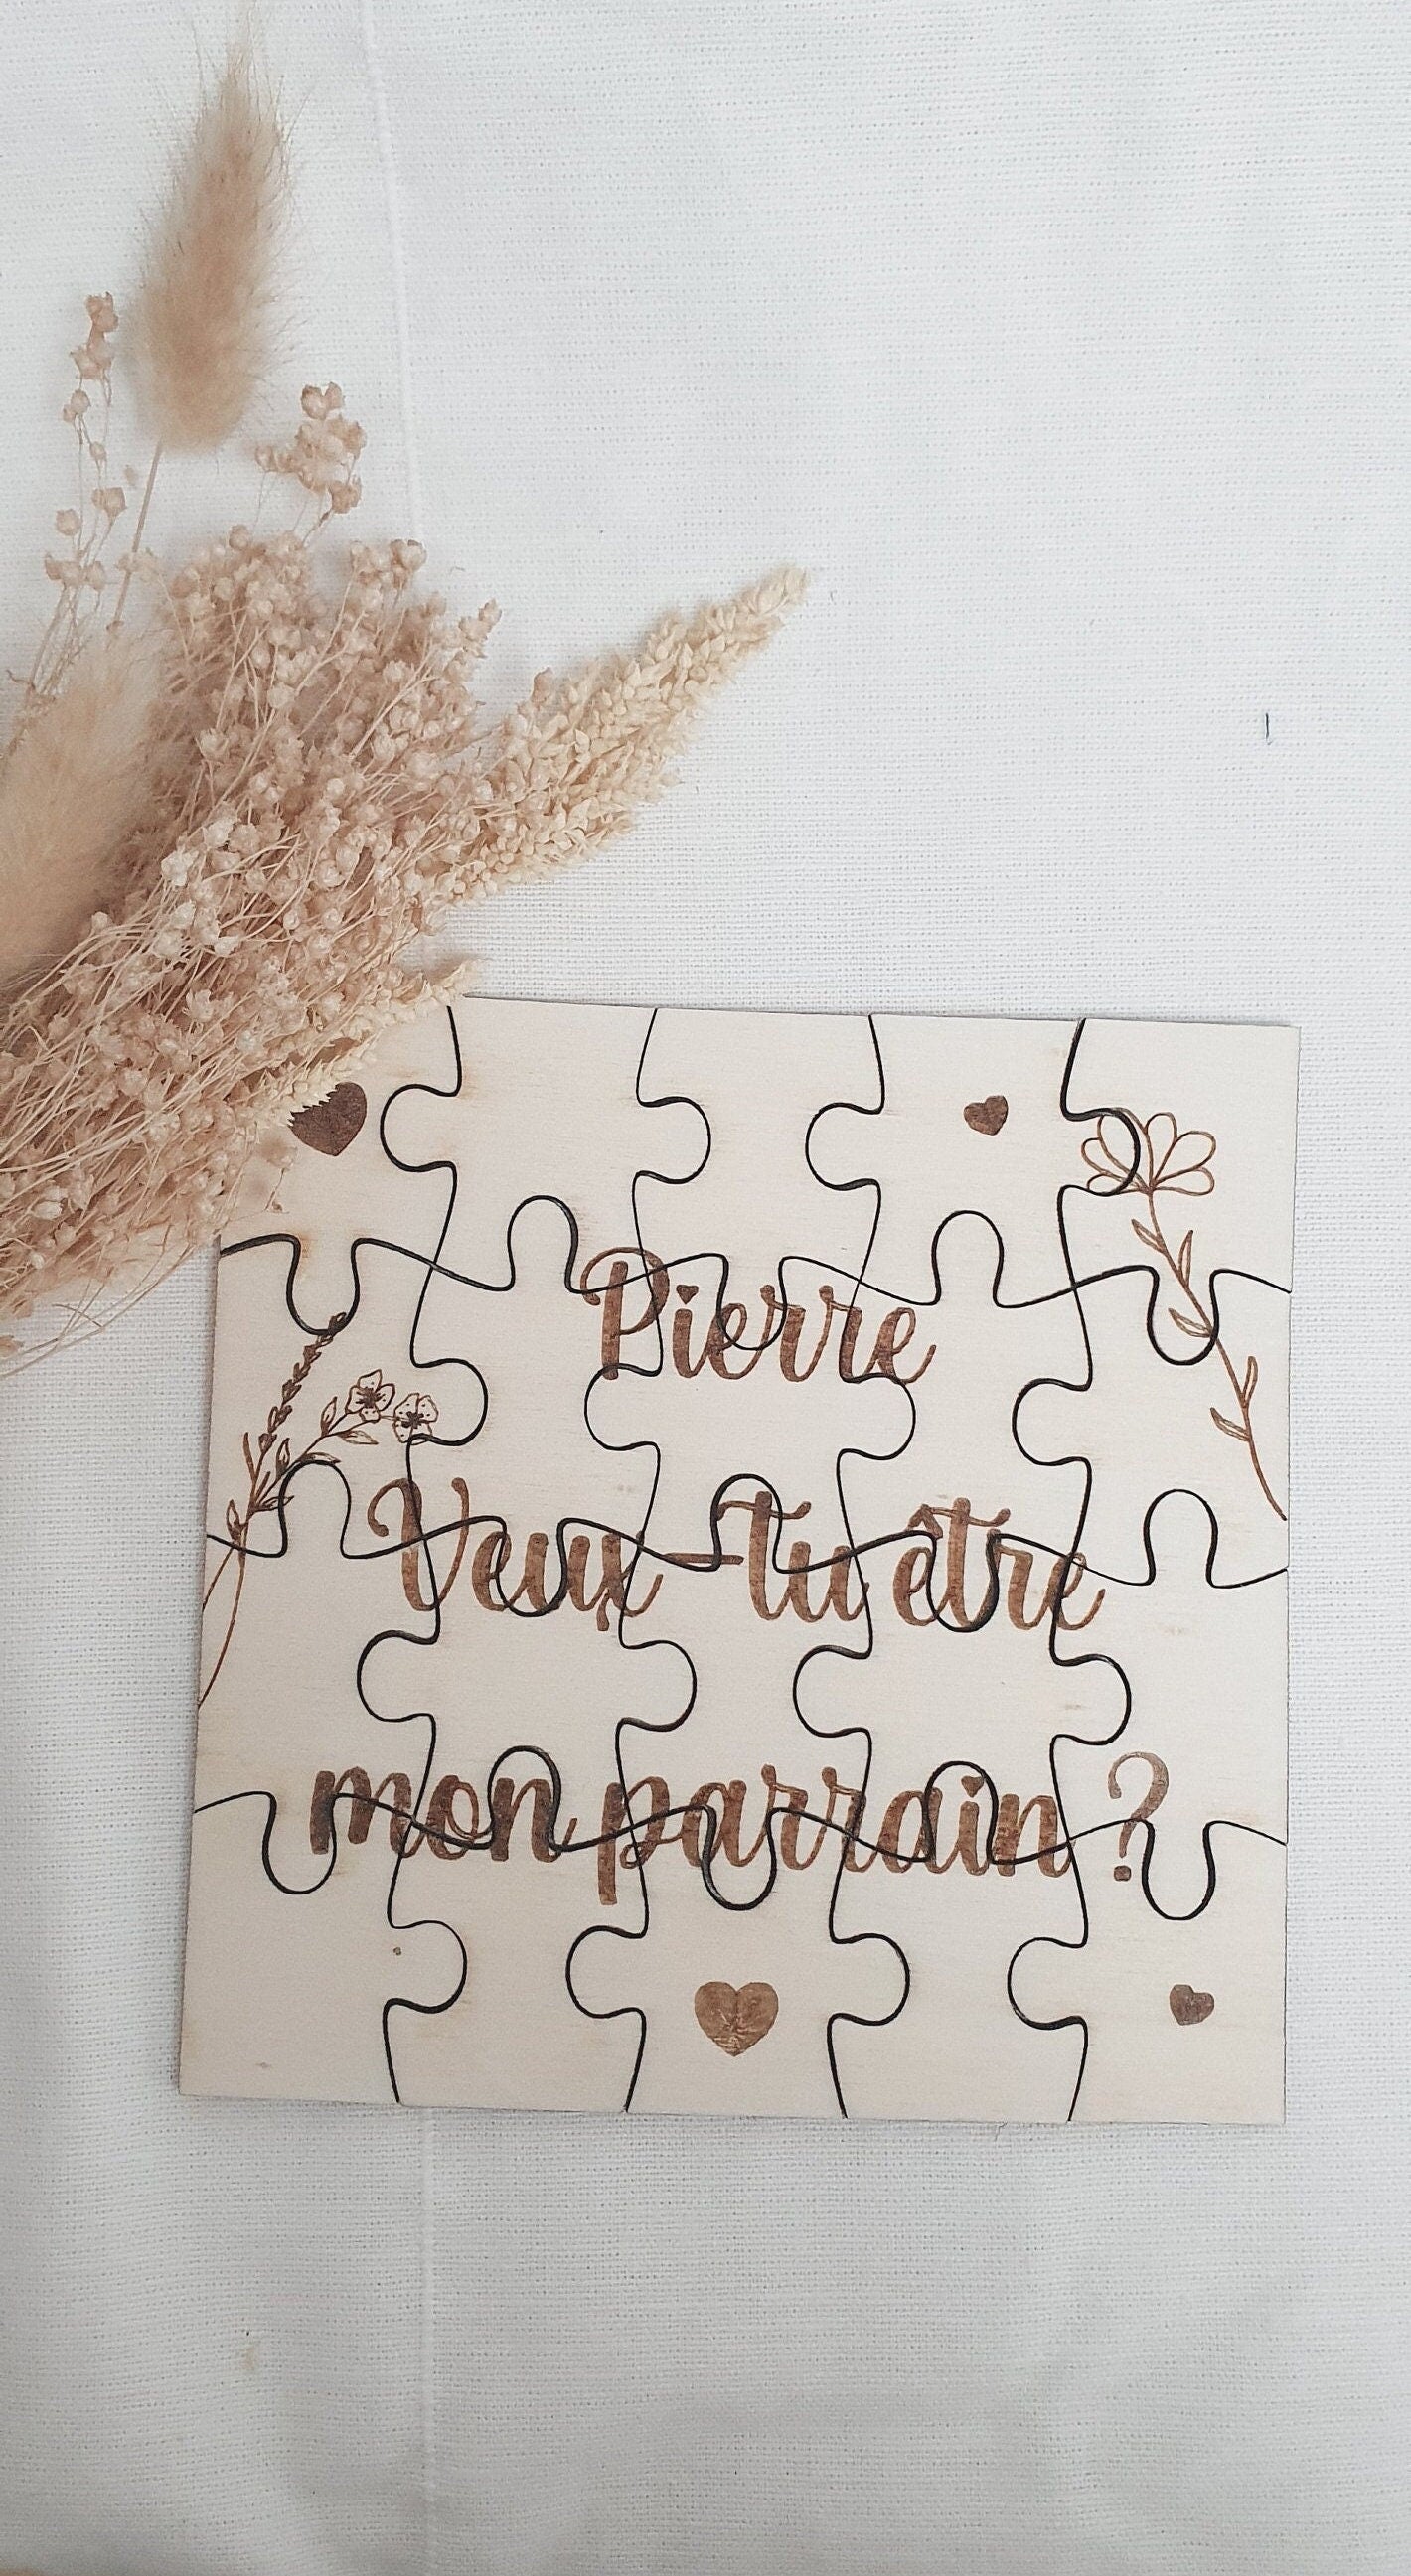 Pierre
Veux-tu être
mon parrain ?